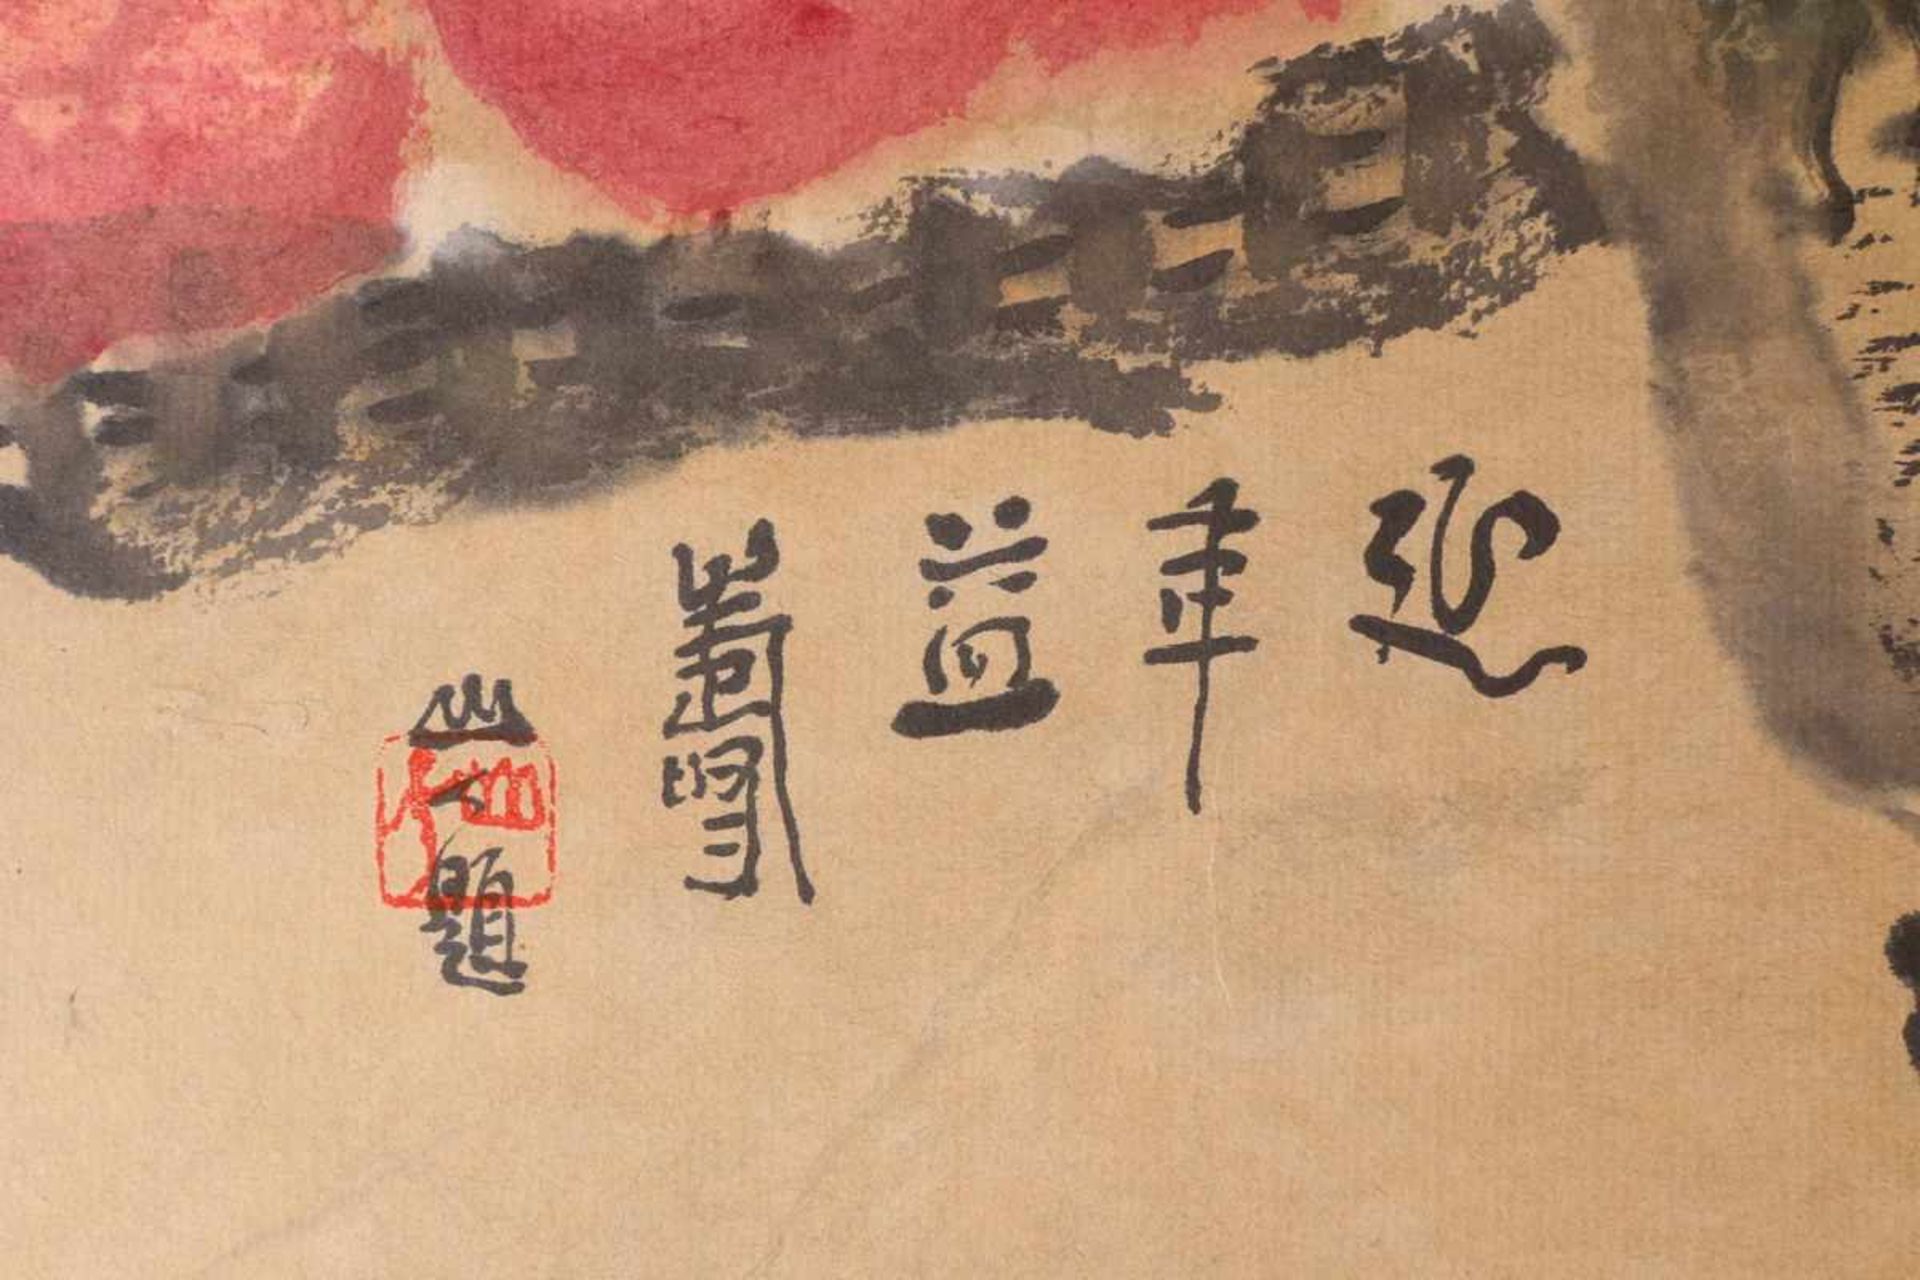 延年益壽
山人題